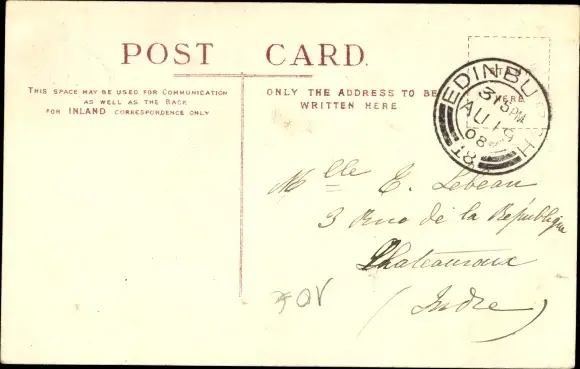 POST CARD.
THIS SPACE MAY BE USED FOR COMMUNICATION
AS WELL AS THE BACK
FOR INLAND CORRESPONDENCE ONLY
ONLY THE ADDRESS TO BE
WRITTEN HERE
HERE
EDINBURGH
3 15 PM
AU 19
08
Mlle E. Lebeau
3 Rue de la République
Chateauroux
(Indre)